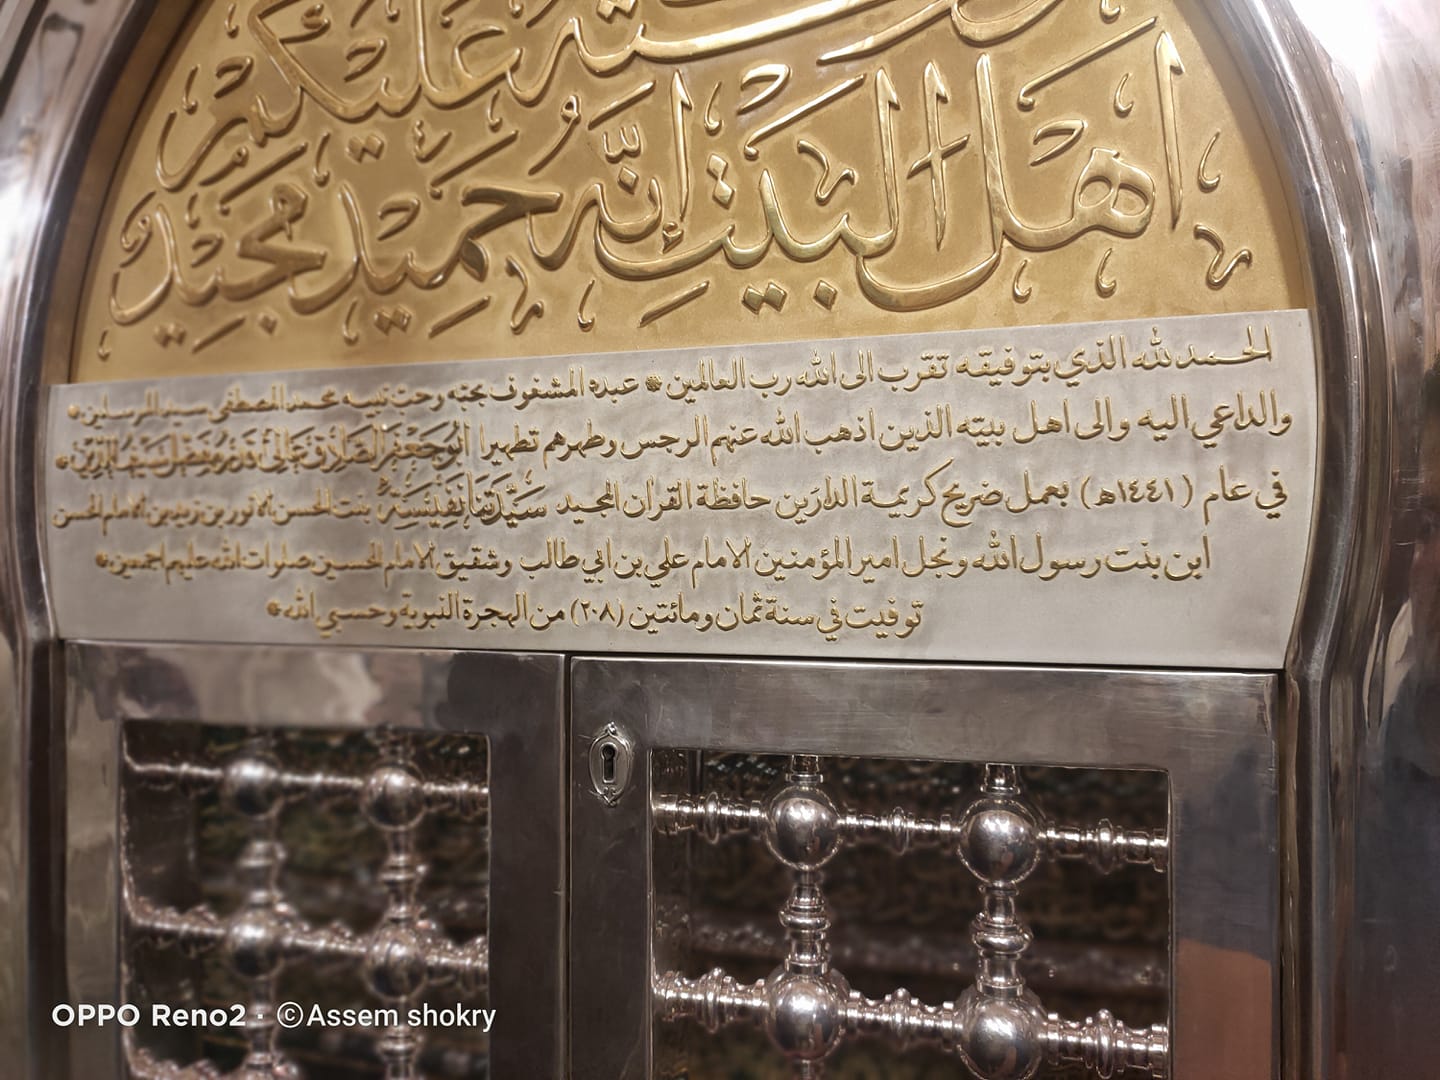 عليكم
اهل البيت إنه حميد مجيد
الحمد لله الذي بتوفيقه تقرب الى الله رب العالمين * عبده المشغوف بحبه وحب نبيه محمد المصطفى سيد المرسلين *
والداعي اليه والى اهل بيته الذين اذهب الله عنهم الرجس وطهرهم تطهيرا ابو جعفر الصادق عالي قدر مفضل سيف الدين *
في عام (١٤٤١هـ) بعمل ضريح كريمة الدارين حافظة القران المجيد سيدتنا نفيسة بنت الحسن الانور بن زيد بن الامام الحسن
ابن بنت رسول الله ونجل امير المؤمنين الامام علي بن ابي طالب وشقيق الامام الحسين صلوات الله عليهم اجمعين *
توفيت في سنة ثمان ومائتين (٢٠٨) من الهجرة النبوية وحسبي الله *
OPPO Reno2 · ©Assem shokry